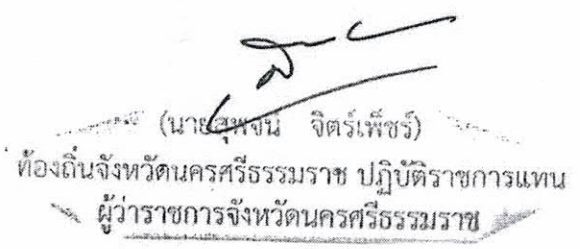 (นายสุพจน์ จิตร์เพ็ชร์)
ท้องถิ่นจังหวัดนครศรีธรรมราช ปฏิบัติราชการแทน
ผู้ว่าราชการจังหวัดนครศรีธรรมราช